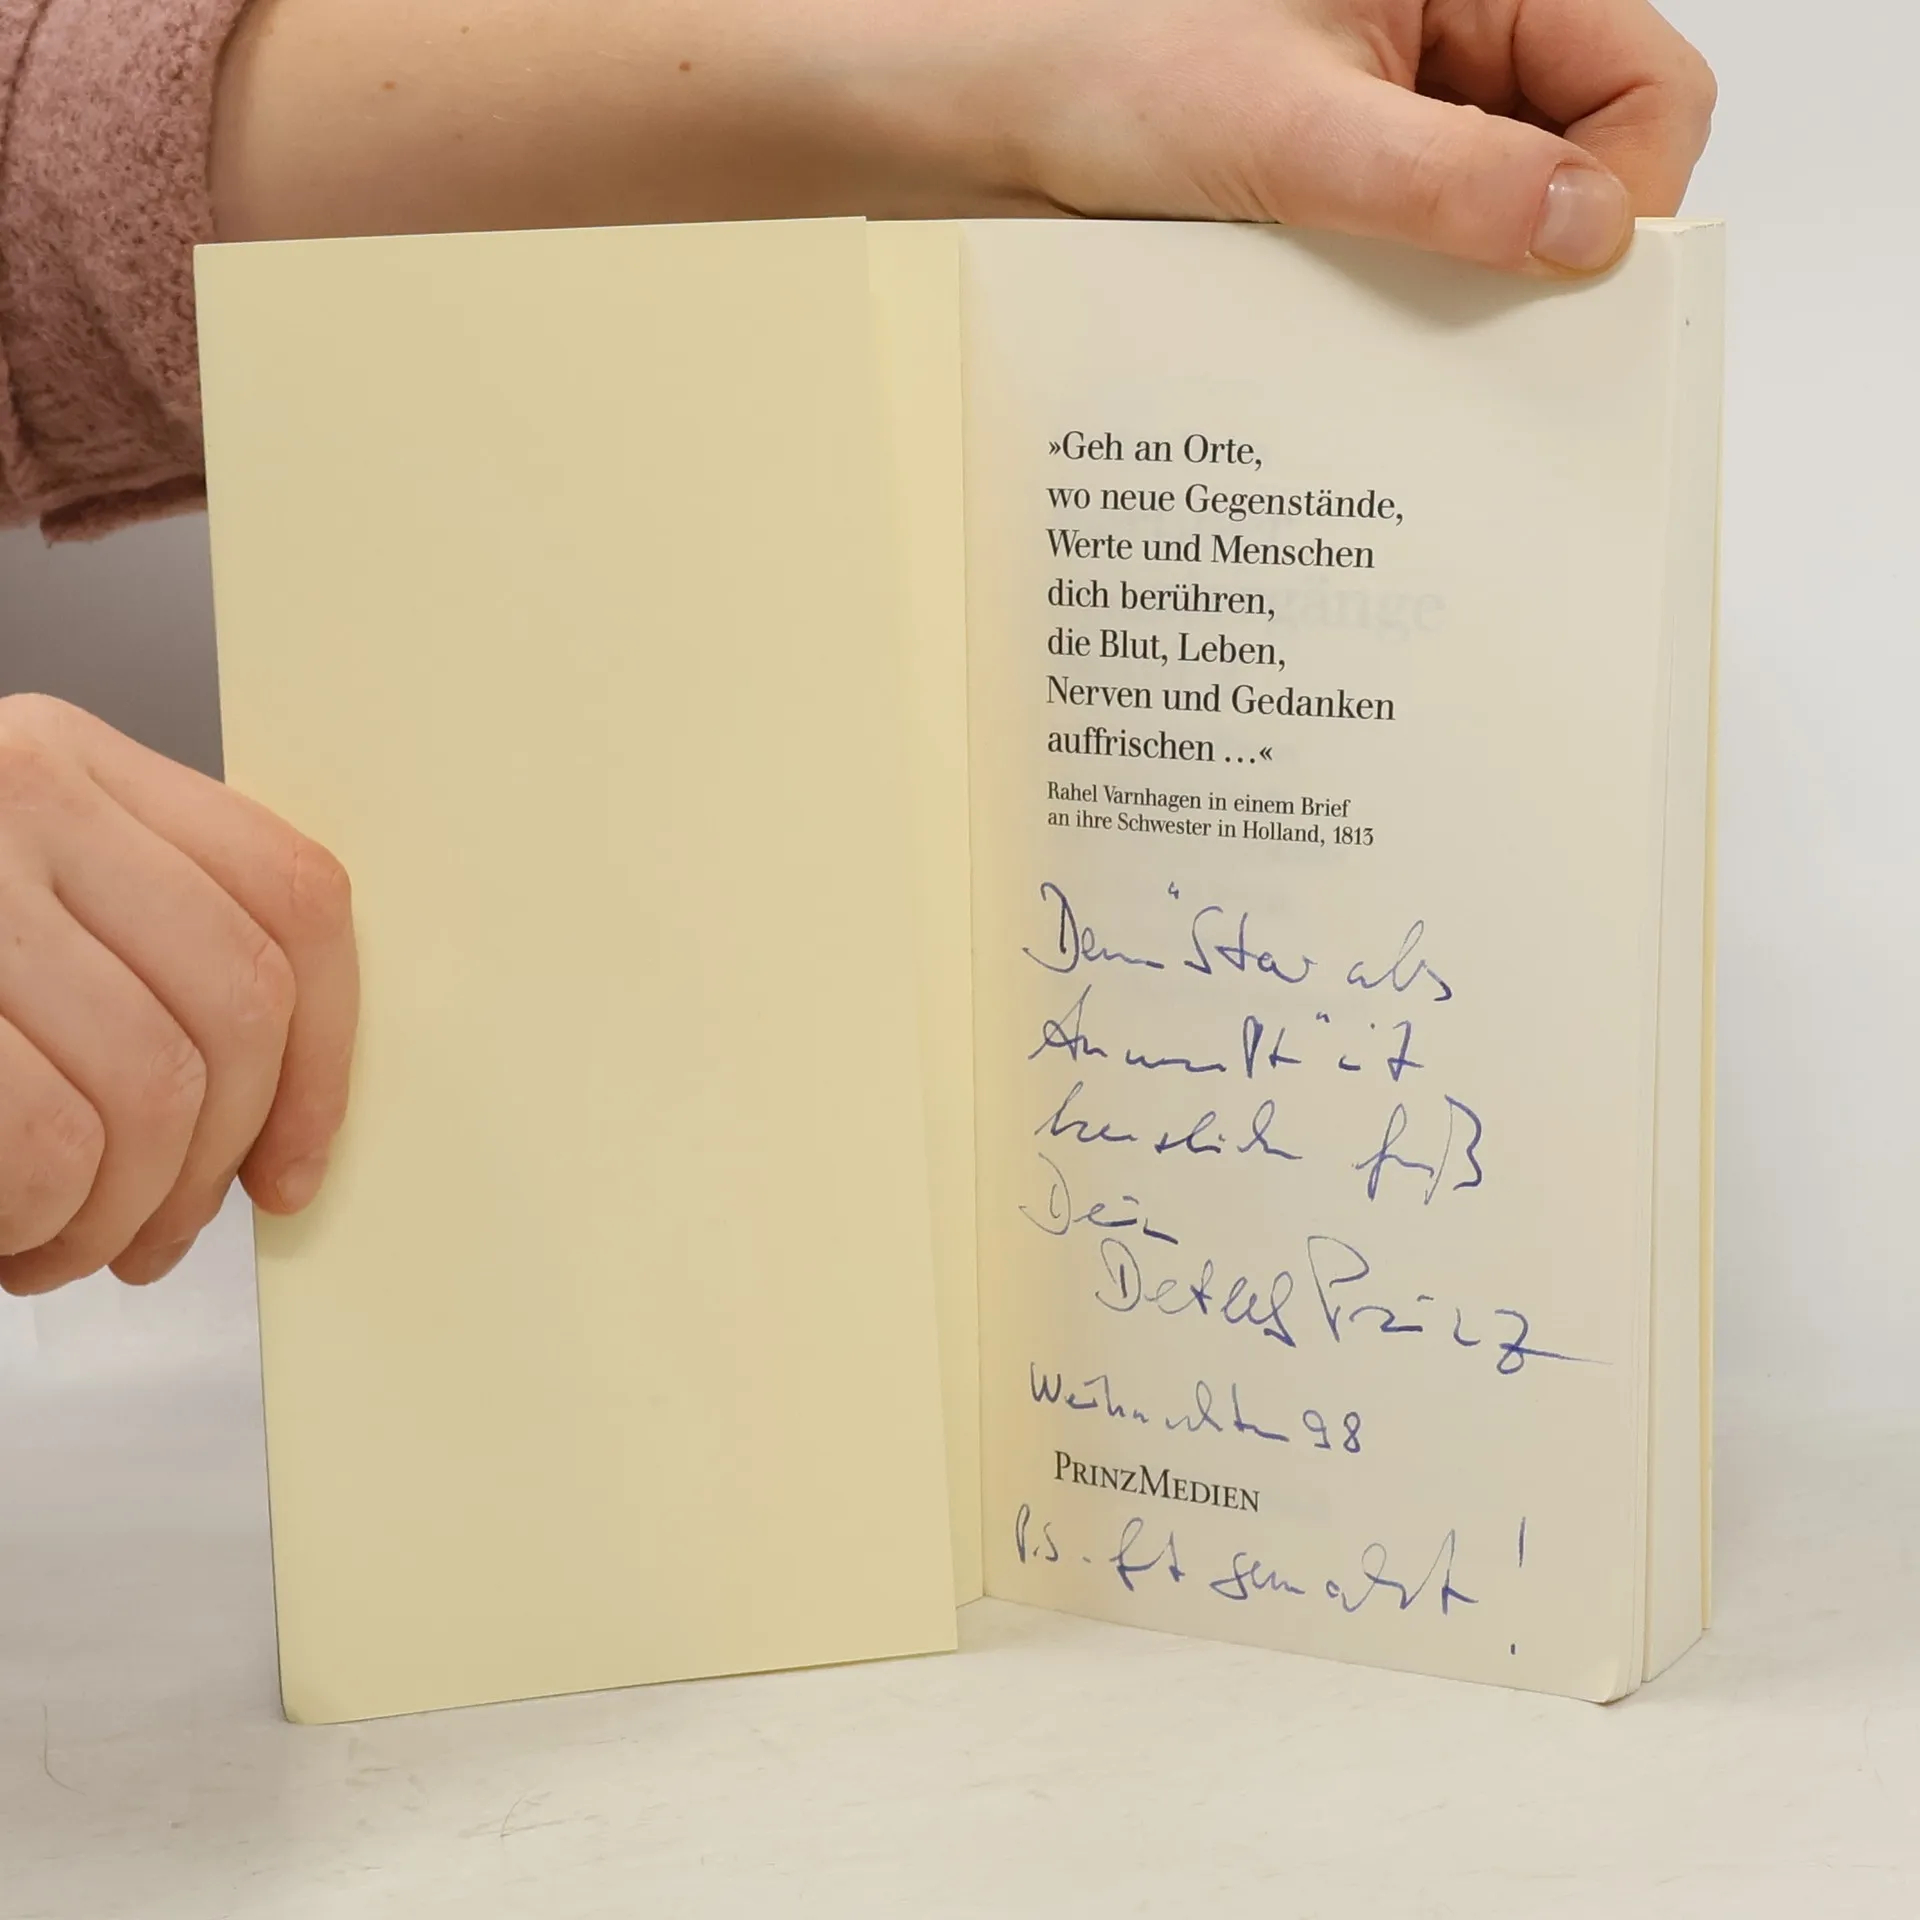 »Geh an Orte,
wo neue Gegenstände,
Werte und Menschen
dich berühren,
die Blut, Leben,
Nerven und Gedanken
auffrischen ...«
Rahel Varnhagen in einem Brief
an ihre Schwester in Holland, 1813
Dem "Star als
Anwalt" mit
herzlichem Gruß
Dein
Detlef Prinz
Weihnachten 98
PRINZMEDIEN
P.S. gemacht!
gänge